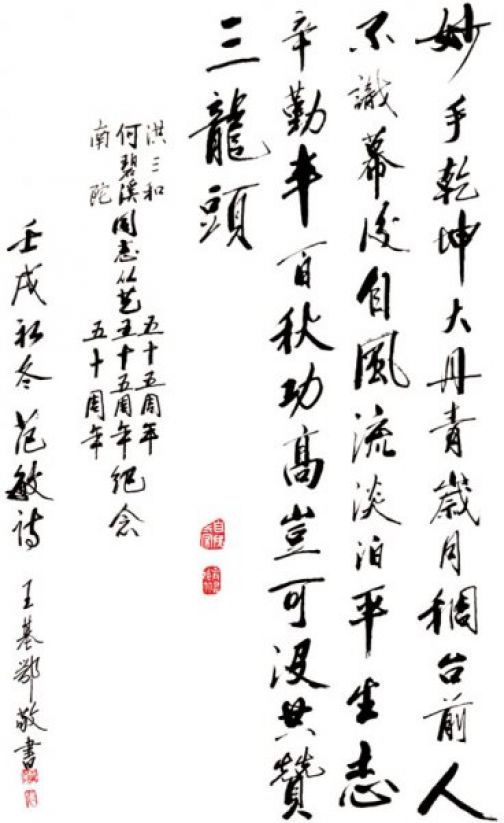 妙手乾坤大丹青歲月稠台前人
不識幕後自風流淡泊平生志
辛勤半百秋功高豈可没共贊
三龍頭
洪三和 五十五周年
何碧溪同志从艺五十五周年纪念
南陀 五十周年
壬戌初冬范敏诗 王基鄂敬書